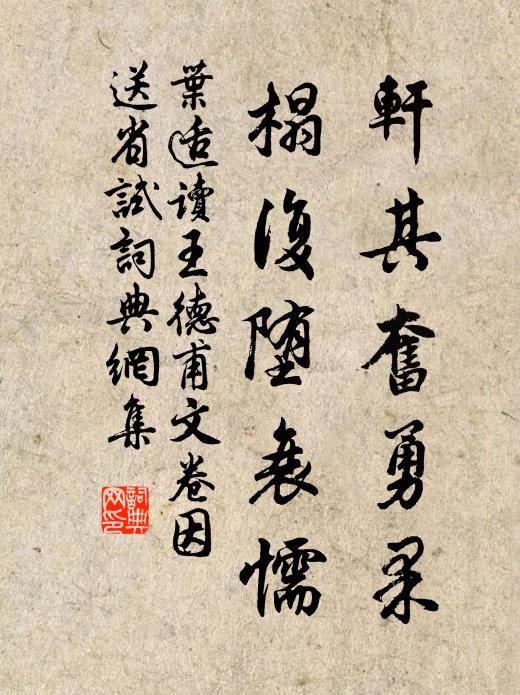 軒其奮勇果
榻復墮衰懦
葉适讀王德甫文卷因
送省試詞典網集
詞典網印